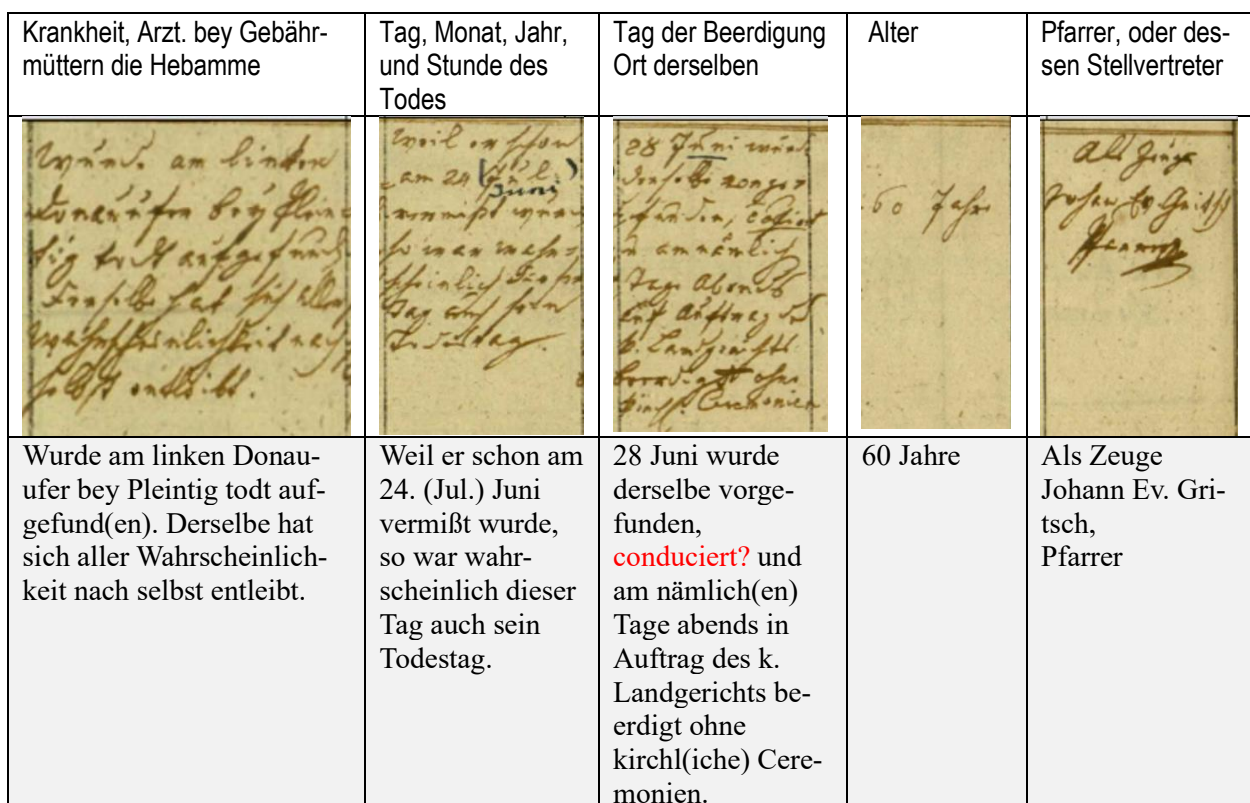 Krankheit, Arzt. bey Gebähr-
müttern die Hebamme
Tag, Monat, Jahr,
und Stunde des
Todes
Tag der Beerdigung
Ort derselben
Alter
Pfarrer, oder des-
sen Stellvertreter
Wurd. am linken
Donauufer bey Plein-
tig todt aufgefund
Derselbe hat sich aller
Wahrscheinlichkeit nach
selbst entleibt.
weil er schon
am 24 (Jul.)
Juni
vermißt wurd
so war wahr-
scheinlich dieser
Tag auch sein
Todestag.
28 Juni wurd
derselbe vorge
funden,
u am nämlich
Tage Abends
auf Auftrag des
k. Landgerichts
beerdigt ohne
kirchl. Ceremonien
60 Jahre
Als Zeuge
Johan Ev. Gritsch
Pfarrer
Wurde am linken Donau-
ufer bey Pleintig todt auf-
gefund(en). Derselbe hat
sich aller Wahrscheinlich-
keit nach selbst entleibt.
Weil er schon am
24. (Jul.) Juni
vermißt wurde,
so war wahr-
scheinlich dieser
Tag auch sein
Todestag.
28 Juni wurde
derselbe vorge-
funden,
conduciert? und
am nämlich(en)
Tage abends in
Auftrag des k.
Landgerichts be-
erdigt ohne
kirchl(iche) Cere-
monien.
60 Jahre
Als Zeuge
Johann Ev. Gri-
tsch,
Pfarrer